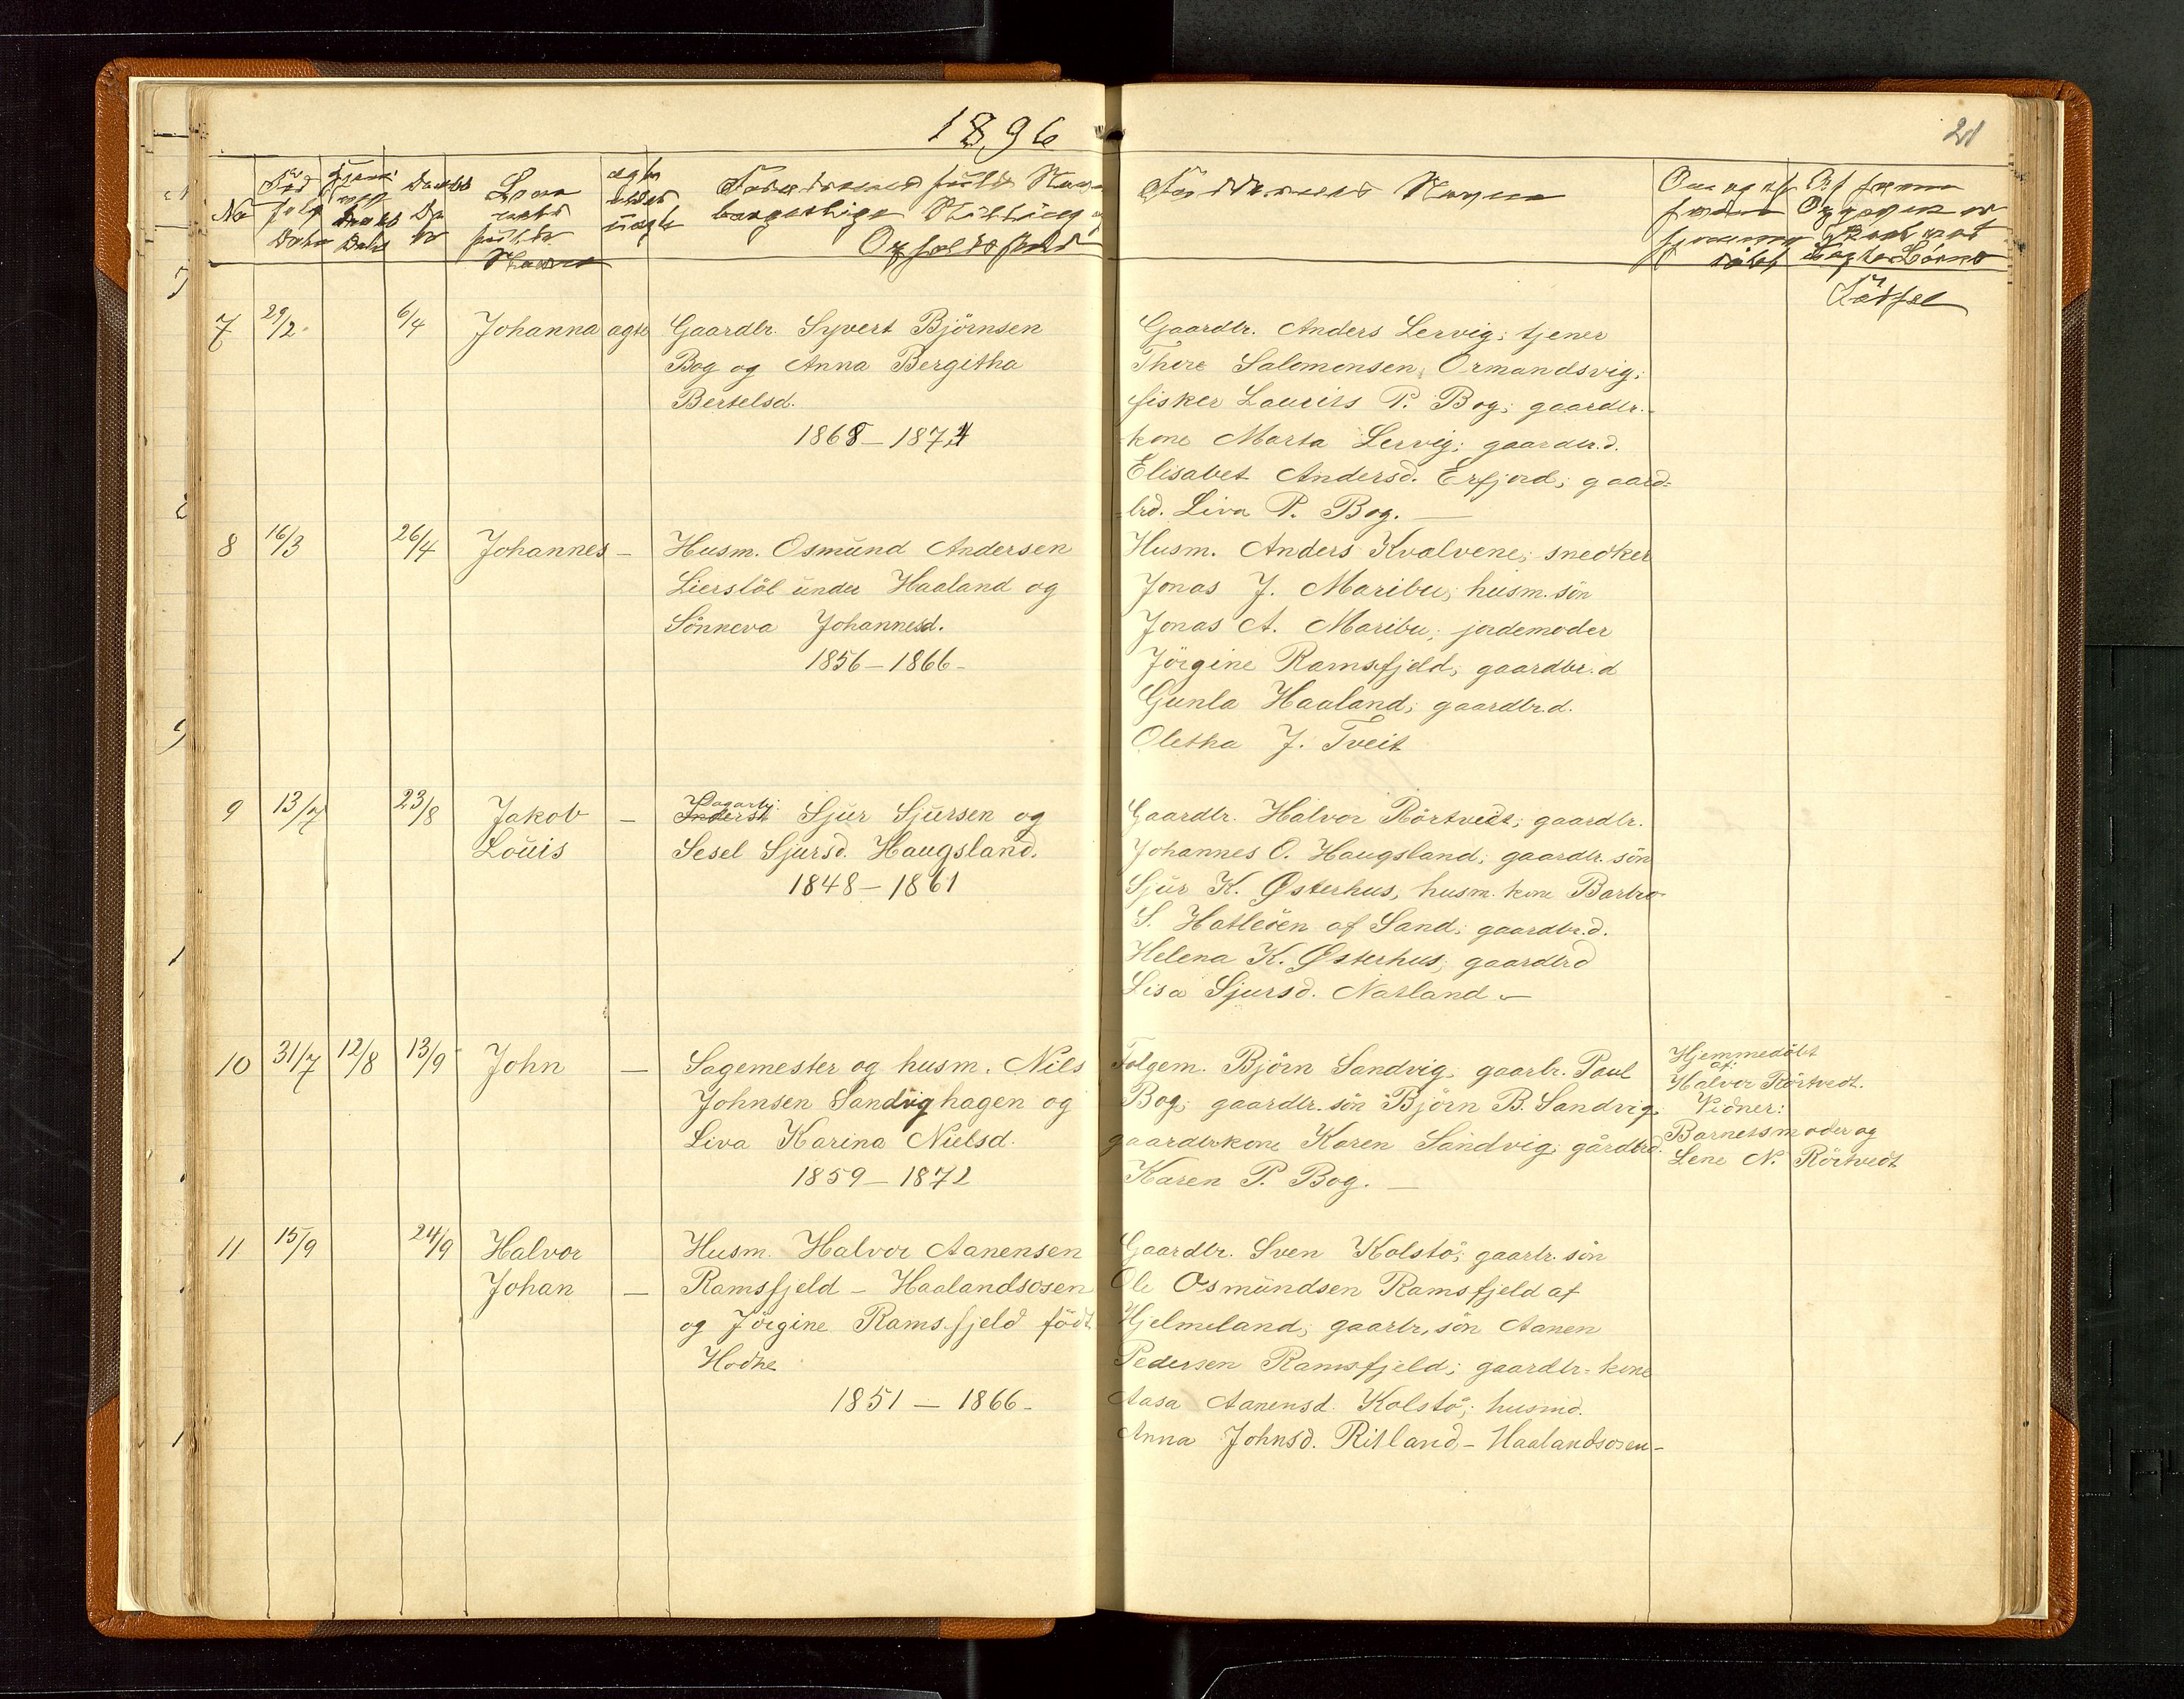 1896
21
No
Fød
sels
Dato
Hjem
me
Daabs
Dato
Daabs
Da
to
Barnets
fulde
Navn
ægte
eller
uægte
Forældrenes fulde Navn
borgerlige Stilling og
Opholdssted
Faddernes Navne
Om og af
hvem
hjemme
døbt
7 29/2 6/4 Johanna ægte Gaardbr. Syvert Björnsen
Bog og Anna Bergitha
Bertelsd.
1868 – 1874
Gaardbr. Anders Lervig; tjener
Thore Salomonsen Ormandsvig;
fisker Laurits P. Bog; gaardbr.-
kone Marta Lervig; gaardbr.d.
Elisabet Andersd. Erfjord; gaard-
=brd. Liva P. Bog. —
8 16/3 26/4 Johannes – Husm. Osmund Andersen
Lierstöl under Haaland og
Sönneva Johannesd.
1856 – 1866 –
Husm. Anders Kvalvene; snedker
Jonas J. Maribu; husm. sön
Jonas A. Maribu; jordemoder
Jörgine Ramsfjeld; gaardbr.d
Gunla Haaland; gaardbr.d.
Oletha J. Tveit
9 13/7 23/8 Jakob
Louis
– Dagarb: Sjur Sjursen og
Sesel Sjursd. Haugsland.
1848 – 1861
Gaardbr. Halvor Rörtvedt; gaardbr.
Johannes O. Haugsland; gaardbr. sön
Sjur K. Østerhus; husm. kone Barbro
S. Hatlöen af Sand; gaardbr.d.
Helena K. Østerhus; gaardbrd
Lisa Sjursd. Natland –
10 31/7 12/8 13/9 John – Sagemester og husm. Nils
Johnsen Sandvighagen og
Liva Karina Nielsd.
1859 – 1872
Folgem. Björn Sandvig; gaarbr. Paul
Bog; gaardbr. sön Björn B. Sandvig;
gaardbrkone Karen Sandvig; gårdbrd.
Karen P. Bog. —
Hjemmedöbt
af:
Halvor Rörtvedt.
Vidner:
Barnetsmoder og
Lene N. Rörtvedt
11 15/9 24/9 Halvor
Johan
– Husm. Halvor Aanensen
Ramsfjeld – Haalandsosen
og Jörgine Ramsfjeld födt
Hodne
1851 – 1866 –
Gaardbr. Sven Kolstö; gaarbr. sön
Ole Osmundsen Ramsfjeld af
Hjelmeland; gaarbr. sön Aanen
Pedersen Ramsfjeld; gaardbr-kone
Aasa Aanensd. Kolstö; husmd.
Anna Johnsd. Ritland – Haalandsosen –